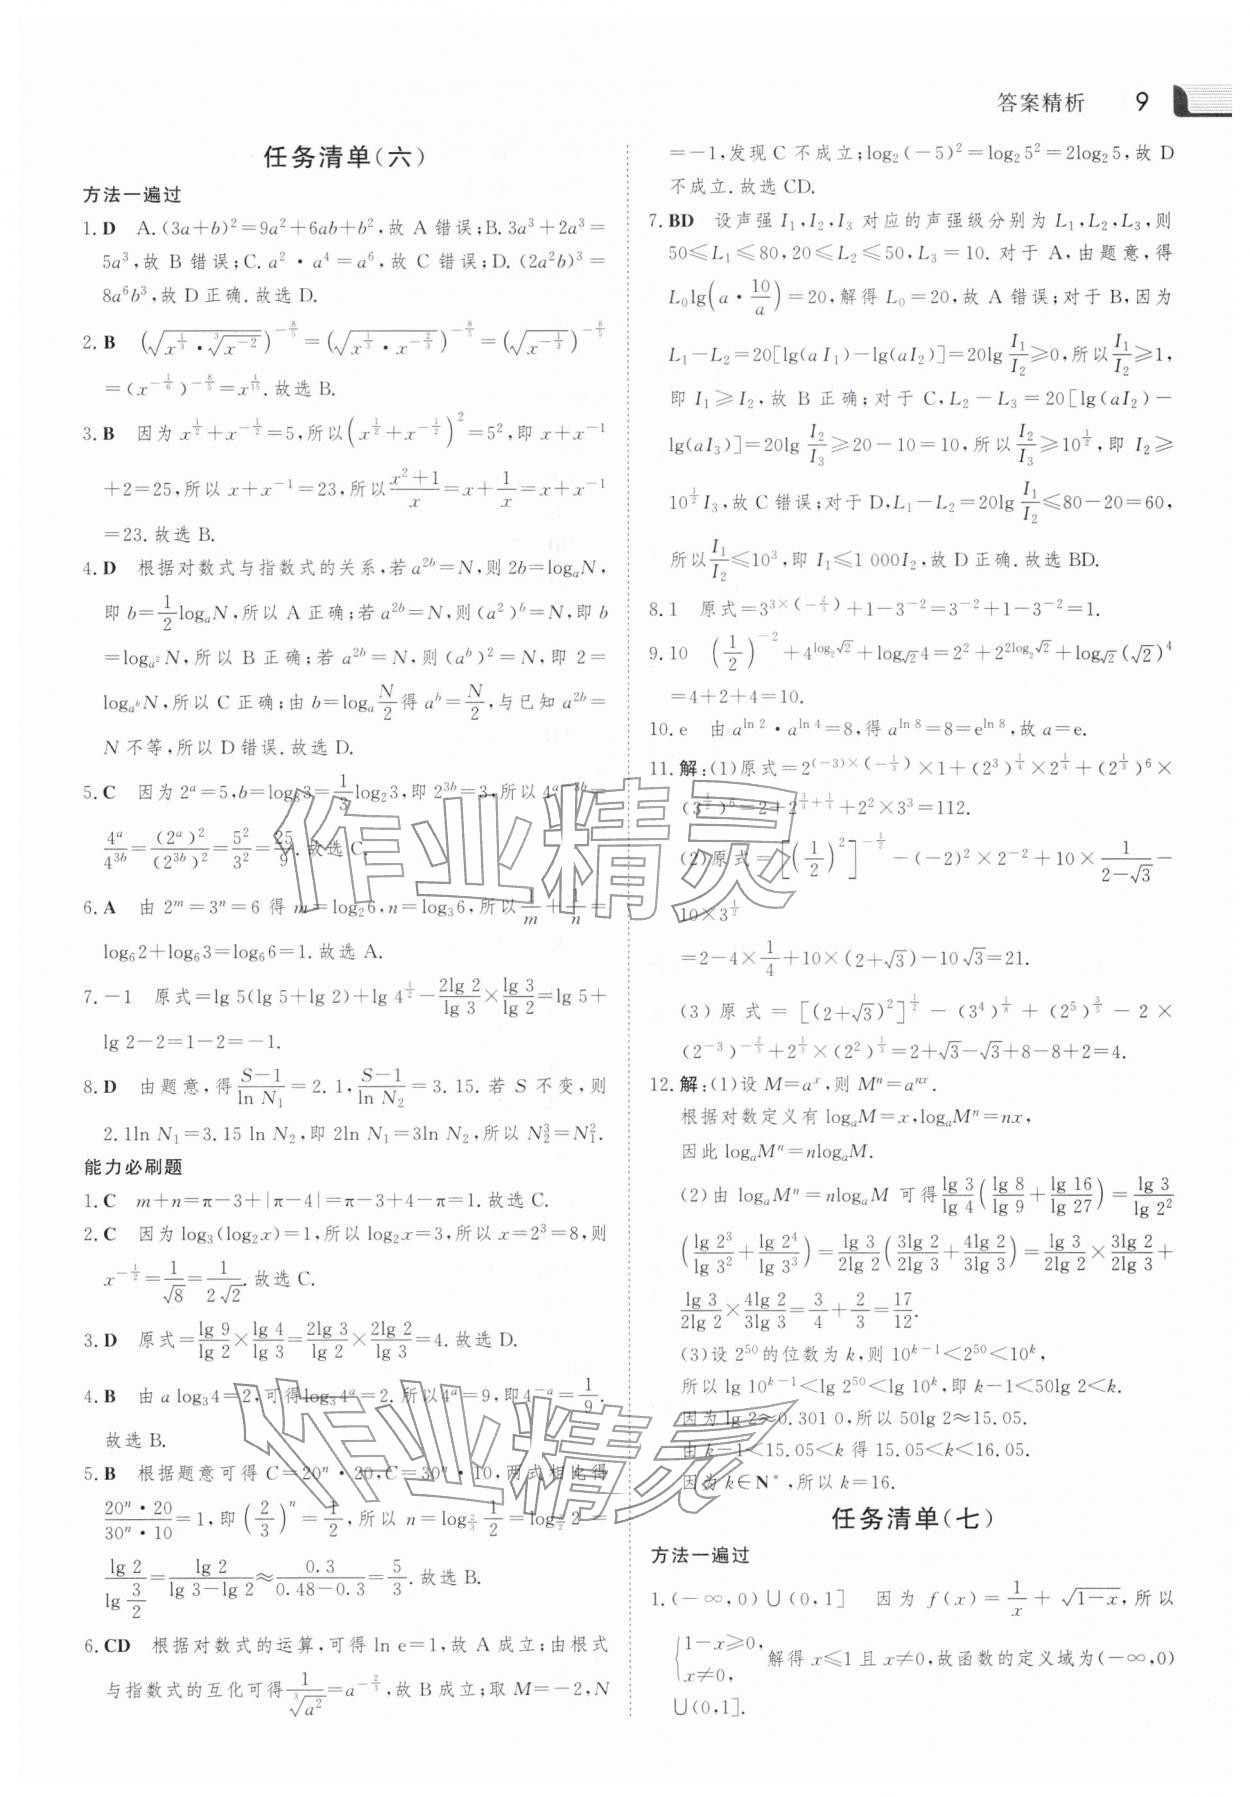 答案精析 9
任务清单(六)
方法一遍过
1. D A. (3a+b)²=9a²+6ab+b²,故 A 错误;B. 3a³+2a³=
5a³,故 B 错误;C. a²·a⁴=a⁶,故 C 错误;D. (2a²b)³=
8a⁶b³,故 D 正确.故选 D.
2. B (√(x^(1/3)·∛(x^(-2))))^(-8/5)=(√(x^(1/3)·x^(-2/3)))^(-8/5)=(√(x^(-1/3)))^(-8/5)
=(x^(-1/6))^(-8/5)=x^(4/15).故选 B.
3. B 因为 x^(1/2)+x^(-1/2)=5,所以(x^(1/2)+x^(-1/2))²=5²,即 x+x⁻¹
+2=25,所以 x+x⁻¹=23,所以(x²+1)/x=x+1/x=x+x⁻¹
=23.故选 B.
4. D 根据对数式与指数式的关系,若 a^(2b)=N,则 2b=logₐN,
即 b=1/2 logₐN,所以 A 正确;若 a^(2b)=N,则(a²)^b=N,即 b
=log_(a²)N,所以 B 正确;若 a^(2b)=N,则(a^b)²=N,即 2=
log_(a^b)N,所以 C 正确;由 b=logₐ N/2 得 a^b=N/2,与已知 a^(2b)=
N 不等,所以 D 错误.故选 D.
5. C 因为 2^a=5,b=log₈3=1/3 log₂3,即 2^(3b)=3,所以 4^(a-3b)=
4^a/4^(3b)=(2^a)²/(2^(3b))²=5²/3²=25/9.故选 C.
6. A 由 2^m=3^n=6 得 m=log₂6,n=log₃6,所以 1/m+1/n=
log₆2+log₆3=log₆6=1.故选 A.
7. -1 原式=lg 5(lg 5+lg 2)+lg 4^(1/2)-(2lg 2)/(lg 3)×(lg 3)/(lg 2)=lg 5+
lg 2-2=1-2=-1.
8. D 由题意,得(S-1)/(ln N₁)=2.1,(S-1)/(ln N₂)=3.15.若 S 不变,则
2.1ln N₁=3.15 ln N₂,即 2ln N₁=3ln N₂,所以 N₂³=N₁².
能力必刷题
1. C m+n=π-3+|π-4|=π-3+4-π=1.故选 C.
2. C 因为 log₃(log₂x)=1,所以 log₂x=3,所以 x=2³=8,则
x^(-1/2)=1/√8=1/(2√2).故选 C.
3. D 原式=(lg 9)/(lg 2)×(lg 4)/(lg 3)=(2lg 3)/(lg 2)×(2lg 2)/(lg 3)=4.故选 D.
4. B 由 a log₃4=2,可得log₃4^a=2,所以4^a=9,即4^(-a)=1/9.
故选 B.
5. B 根据题意可得 C=20^n·20,C=30^n·10,两式相比得
(20^n·20)/(30^n·10)=1,即(2/3)^n=1/2,所以 n=log_(2/3) 1/2=log_(3/2)2=
(lg 2)/(lg 3/2)=(lg 2)/(lg 3-lg 2)≈0.3/(0.48-0.3)=5/3.故选 B.
6. CD 根据对数式的运算,可得 ln e=1,故 A 成立;由根式
与指数式的互化可得1/∛(a²)=a^(-2/3),故 B 成立;取 M=-2,N
=-1,发现 C 不成立;log₂(-5)²=log₂5²=2log₂5,故 D
不成立.故选 CD.
7. BD 设声强 I₁,I₂,I₃ 对应的声强级分别为 L₁,L₂,L₃,则
50≤L₁≤80,20≤L₂≤50,L₃=10.对于 A,由题意,得
L₀lg(a·10/a)=20,解得 L₀=20,故 A 错误;对于 B,因为
L₁-L₂=20[lg(aI₁)-lg(aI₂)]=20lg I₁/I₂≥0,所以I₁/I₂≥1,
即 I₁≥I₂,故 B 正确;对于 C,L₂-L₃=20[lg(aI₂)-
lg(aI₃)]=20lg I₂/I₃≥20-10=10,所以I₂/I₃≥10^(1/2),即 I₂≥
10^(1/2)I₃,故 C 错误;对于 D,L₁-L₂=20lg I₁/I₂≤80-20=60,
所以I₁/I₂≤10³,即 I₁≤1 000I₂,故 D 正确.故选 BD.
8. 1 原式=3^(3×(-2/3))+1-3⁻²=3⁻²+1-3⁻²=1.
9. 10 (1/2)⁻²+4^(log₂√2)+log_(√2)4=2²+2^(2log₂√2)+log_(√2)(√2)⁴
=4+2+4=10.
10. e 由 a^(ln 2)·a^(ln 4)=8,得 a^(ln 8)=8=e^(ln 8),故 a=e.
11. 解:(1)原式=2^((-3)×(-1/3))×1+(2³)^(1/4)×2^(1/4)+(2^(1/3))⁶×
(3^(1/2))⁶=2+2^(3/4+1/4)+2²×3³=112.
(2)原式=[(1/2)²]^(-1/2)-(-2)²×2⁻²+10×1/(2-√3)-
10×3^(1/2)
=2-4×1/4+10×(2+√3)-10√3=21.
(3)原式=[(2+√3)²]^(1/2)-(3⁴)^(1/8)+(2⁵)^(3/5)-2×
(2⁻³)^(-2/3)+2^(1/3)×(2²)^(1/3)=2+√3-√3+8-8+2=4.
12. 解:(1)设 M=a^x,则 M^n=a^(nx).
根据对数定义有 logₐM=x,logₐM^n=nx,
因此 logₐM^n=nlogₐM.
(2)由 logₐM^n=nlogₐM 可得(lg 3)/(lg 4)((lg 8)/(lg 9)+(lg 16)/(lg 27))=(lg 3)/(lg 2²)
((lg 2³)/(lg 3²)+(lg 2⁴)/(lg 3³))=(lg 3)/(2lg 2)((3lg 2)/(2lg 3)+(4lg 2)/(3lg 3))=(lg 3)/(2lg 2)×(3lg 2)/(2lg 3)+
(lg 3)/(2lg 2)×(4lg 2)/(3lg 3)=3/4+2/3=17/12.
(3)设 2⁵⁰的位数为 k,则 10^(k-1)<2⁵⁰<10^k,
所以 lg 10^(k-1)<lg 2⁵⁰<lg 10^k,即 k-1<50lg 2<k.
因为 lg 2≈0.301 0,所以 50lg 2≈15.05.
由 k-1<15.05<k 得 15.05<k<16.05.
因为 k∈N*,所以 k=16.
任务清单(七)
方法一遍过
1. (-∞,0)∪(0,1] 因为 f(x)=1/x+√(1-x),所以
{1-x≥0, x≠0, 解得 x≤1 且 x≠0,故函数的定义域为(-∞,0)
∪(0,1].
作业精灵
作业精灵